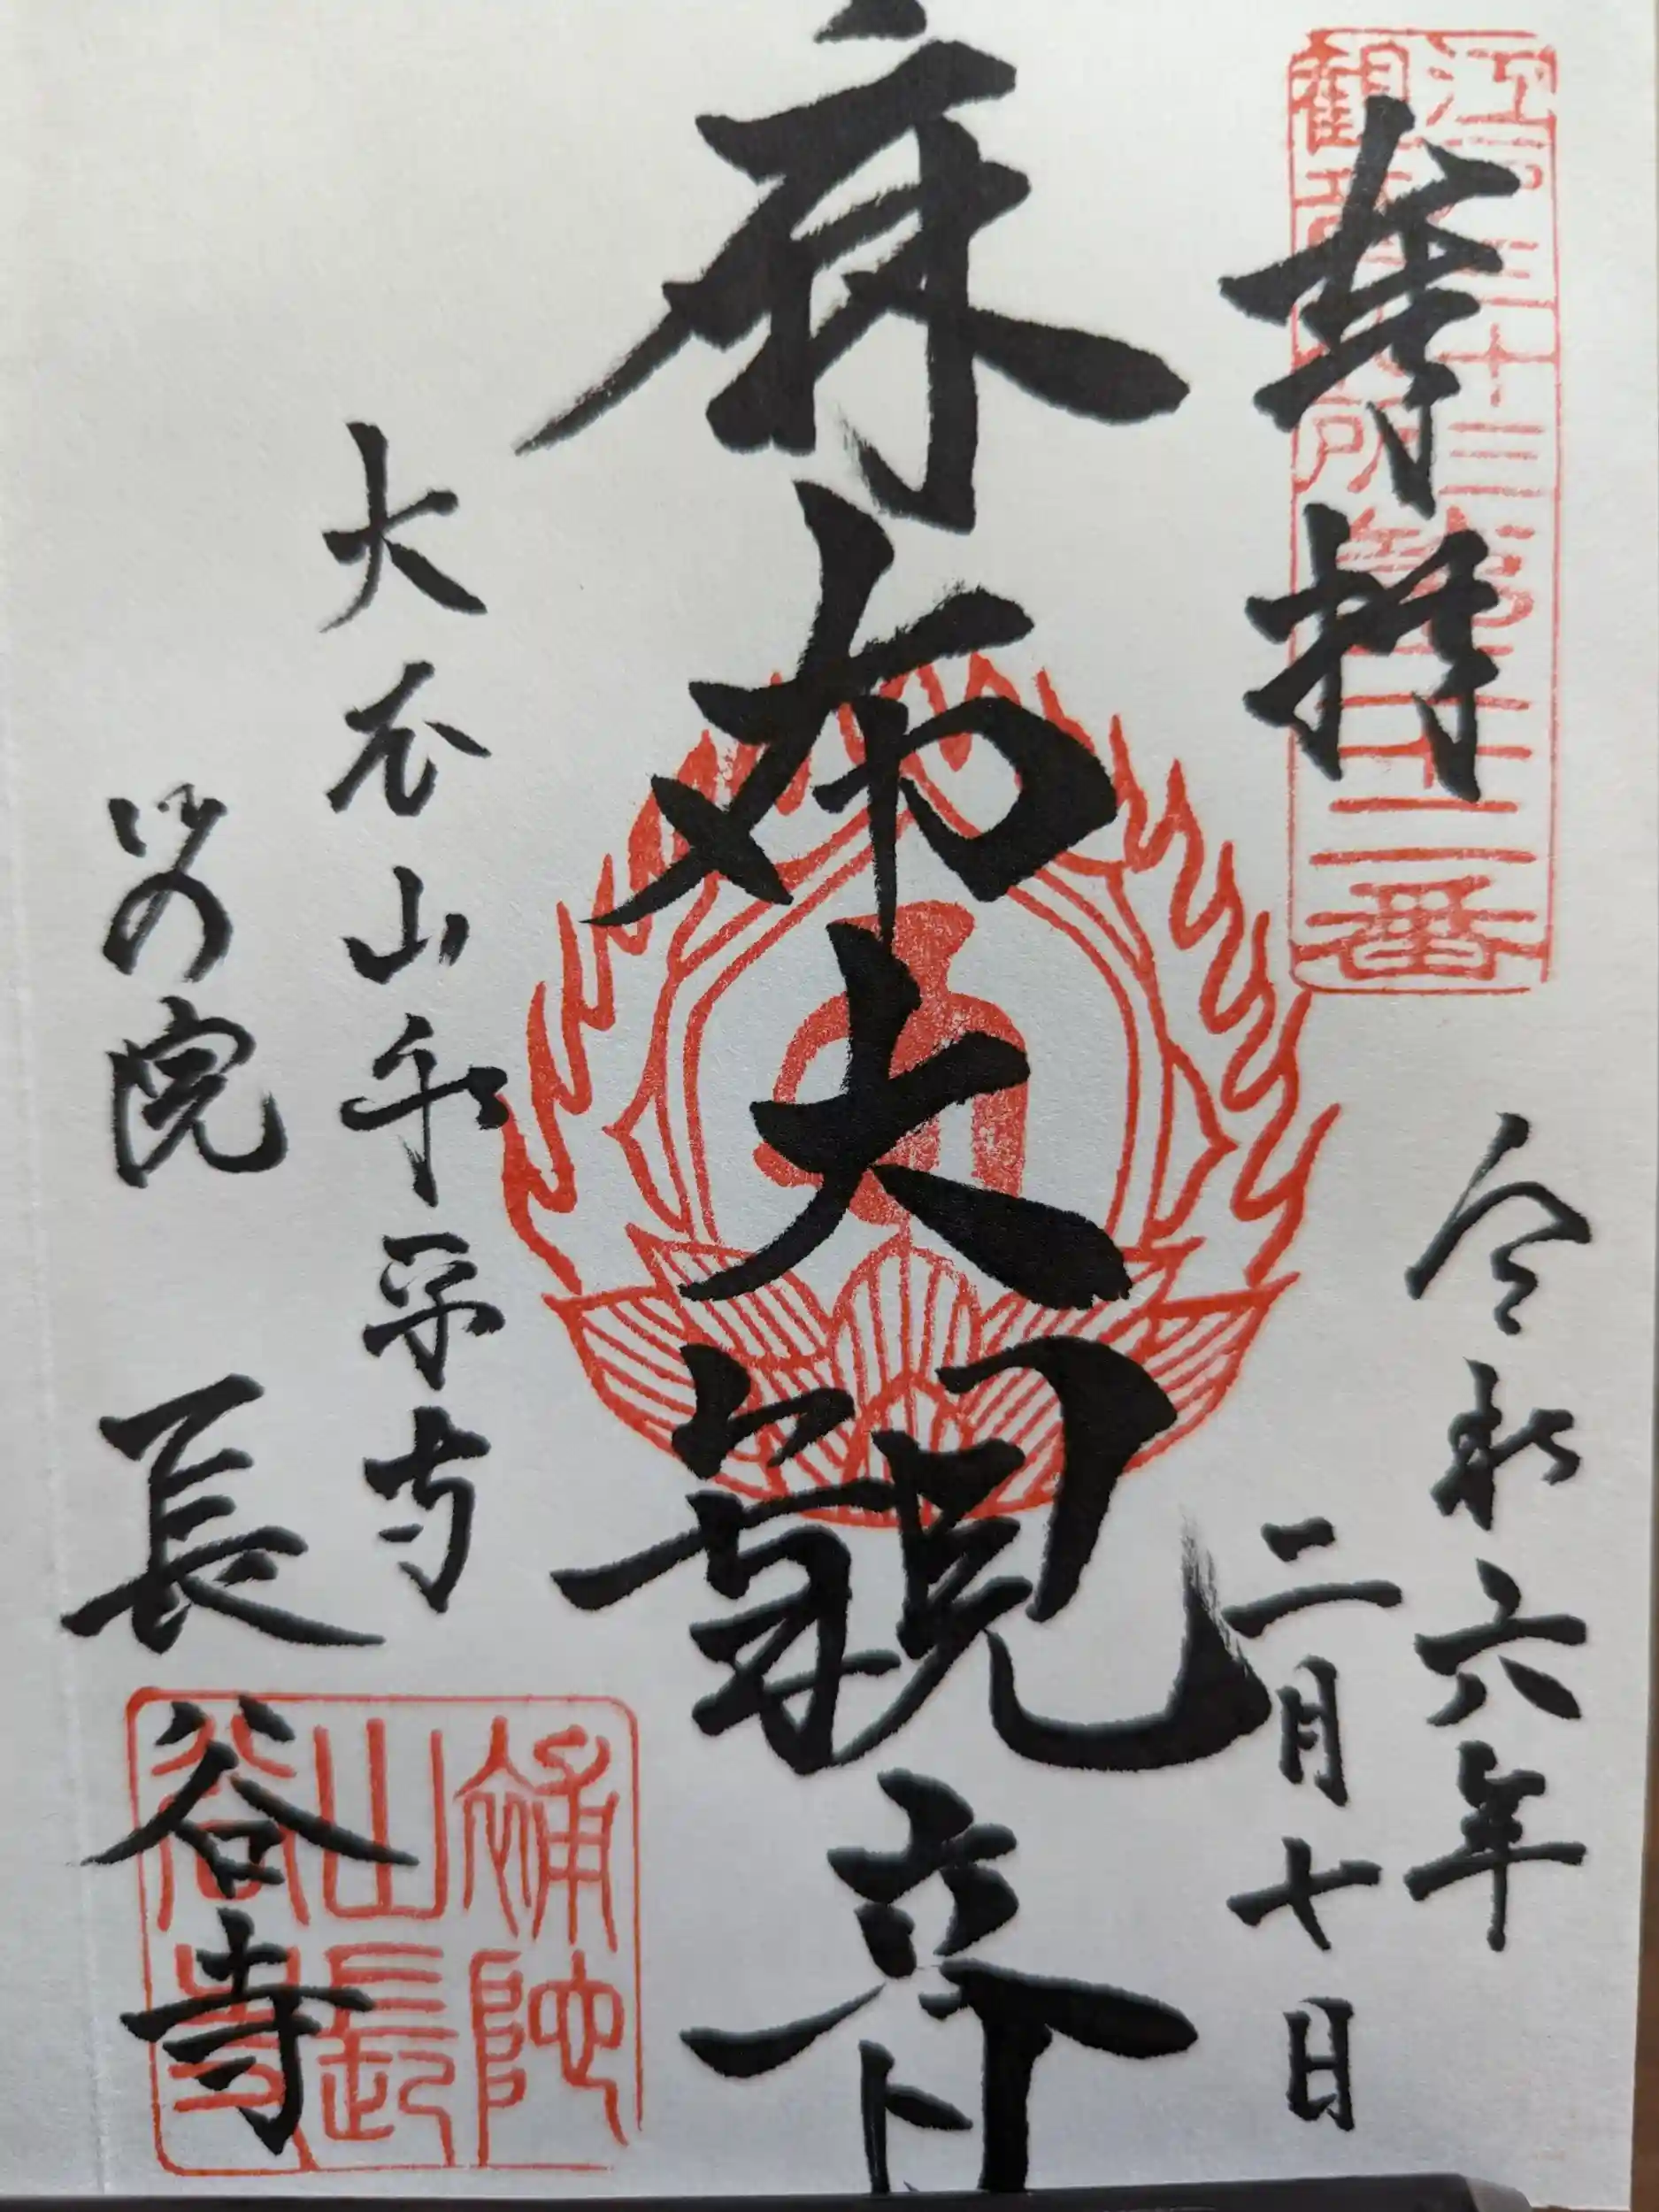 江戸三十三
観音札所
第二十二番
奉拝
令和六年
二月七日
麻布大観音
大本山永平寺
別院 長谷寺
補陀
山長
谷寺